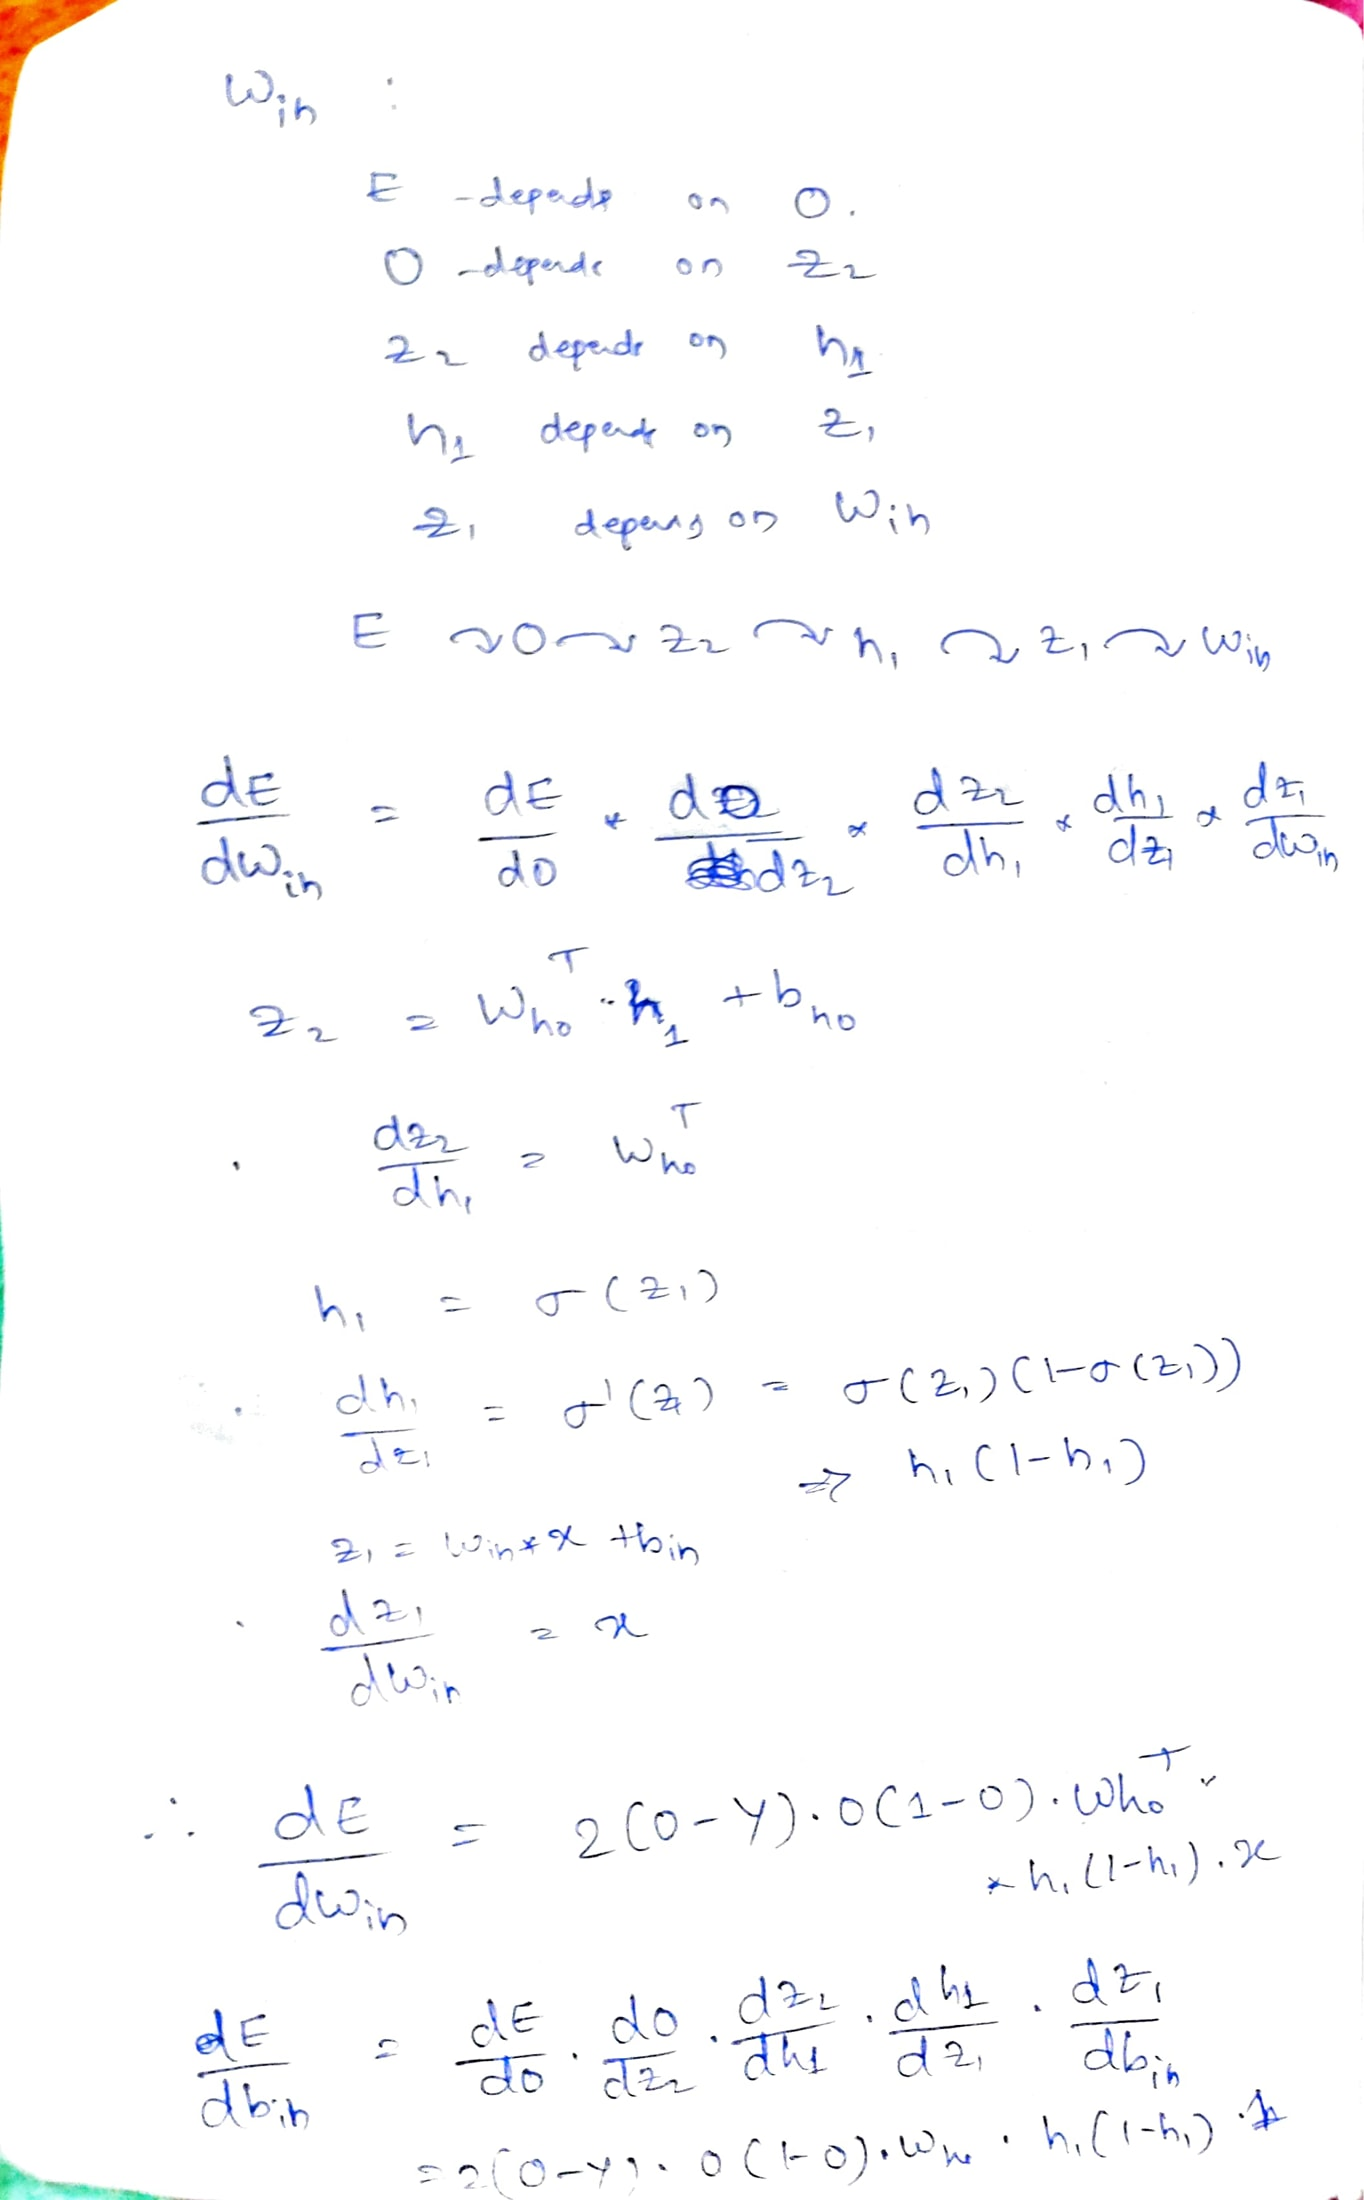 Wih :
E - depends on O.
O - depends on z2
z2 depends on h1
h1 depends on z1
z1 depens on Wih
E ~ O ~ z2 ~ h1 ~ z1 ~ Wih
dE/dWih = dE/dO * dO/dz2 * dz2/dh1 * dh1/dz1 * dz1/dWih
z2 = Who^T · h1 + bho
. dz2/dh1 = Who^T
h1 = σ(z1)
. dh1/dz1 = σ'(z1) = σ(z1)(1-σ(z1))
⇒ h1(1-h1)
z1 = Wih * x + bih
. dz1/dWih = x
∴ dE/dWih = 2(O-Y). O(1-O). Who^T
* h1(1-h1). x
dE/dbih = dE/dO . dO/dz2 . dz2/dh1 . dh1/dz1 . dz1/dbih
= 2(O-Y). O(1-O). Who . h1(1-h1) . 1